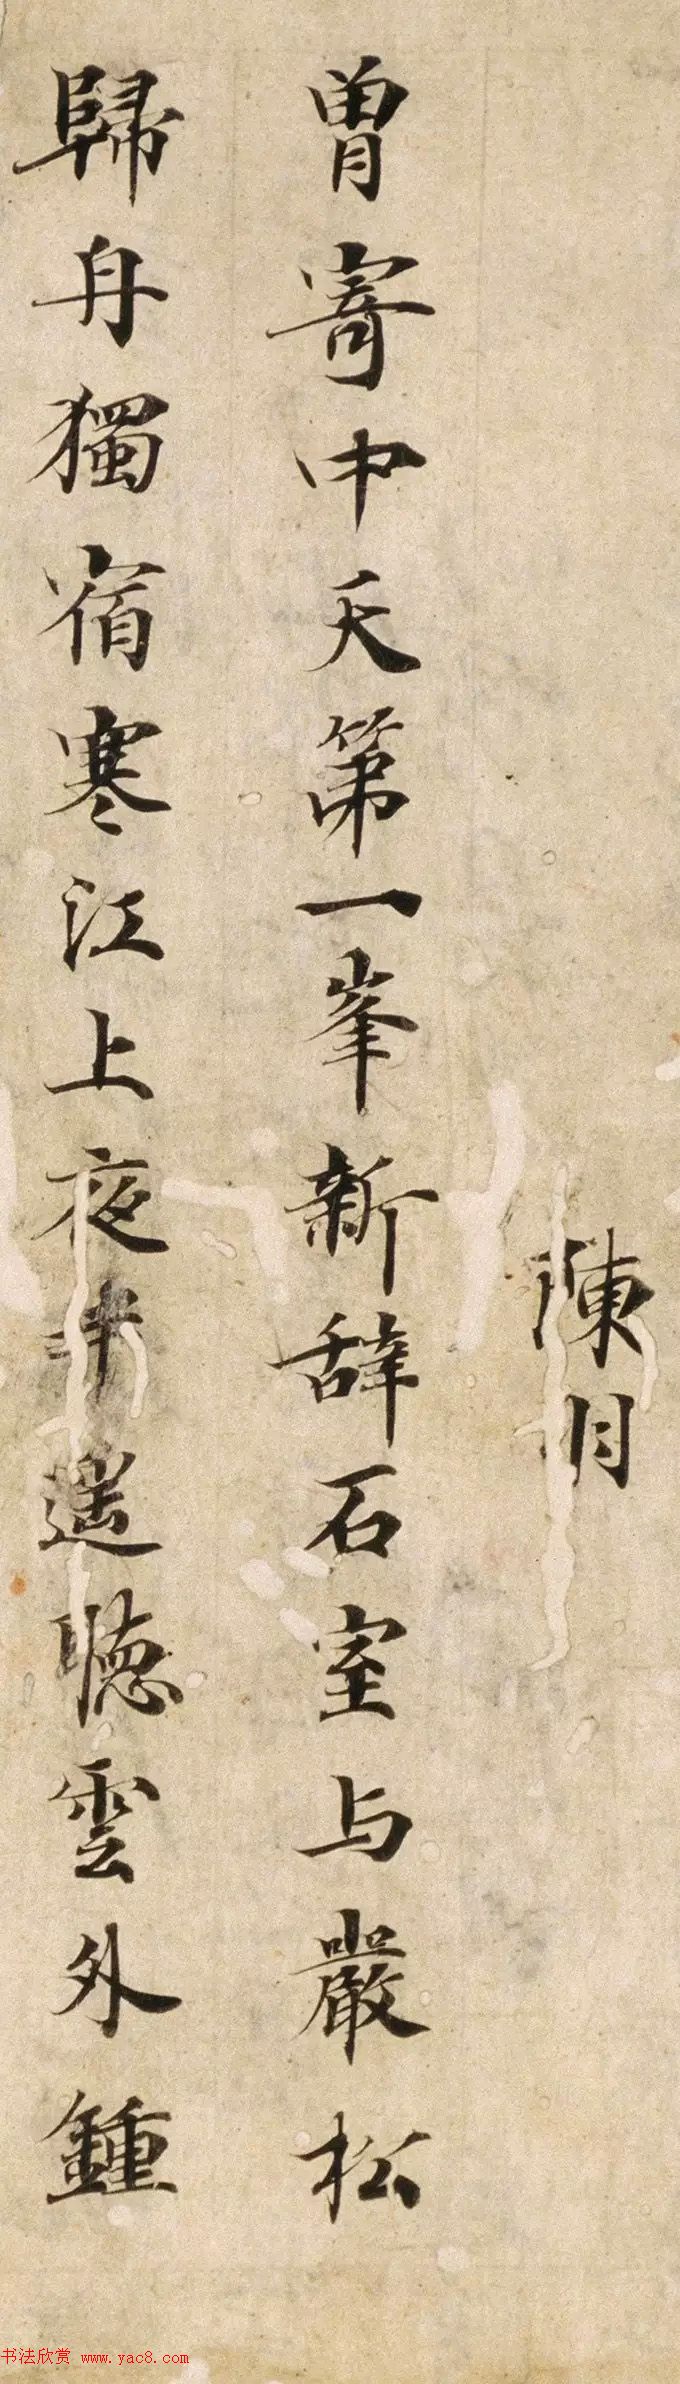 陳月
曾寄中天第一峯新辞石室与嚴松
歸舟獨宿寒江上夜半遥聴雲外鍾
书法欣赏 www.yac8.com